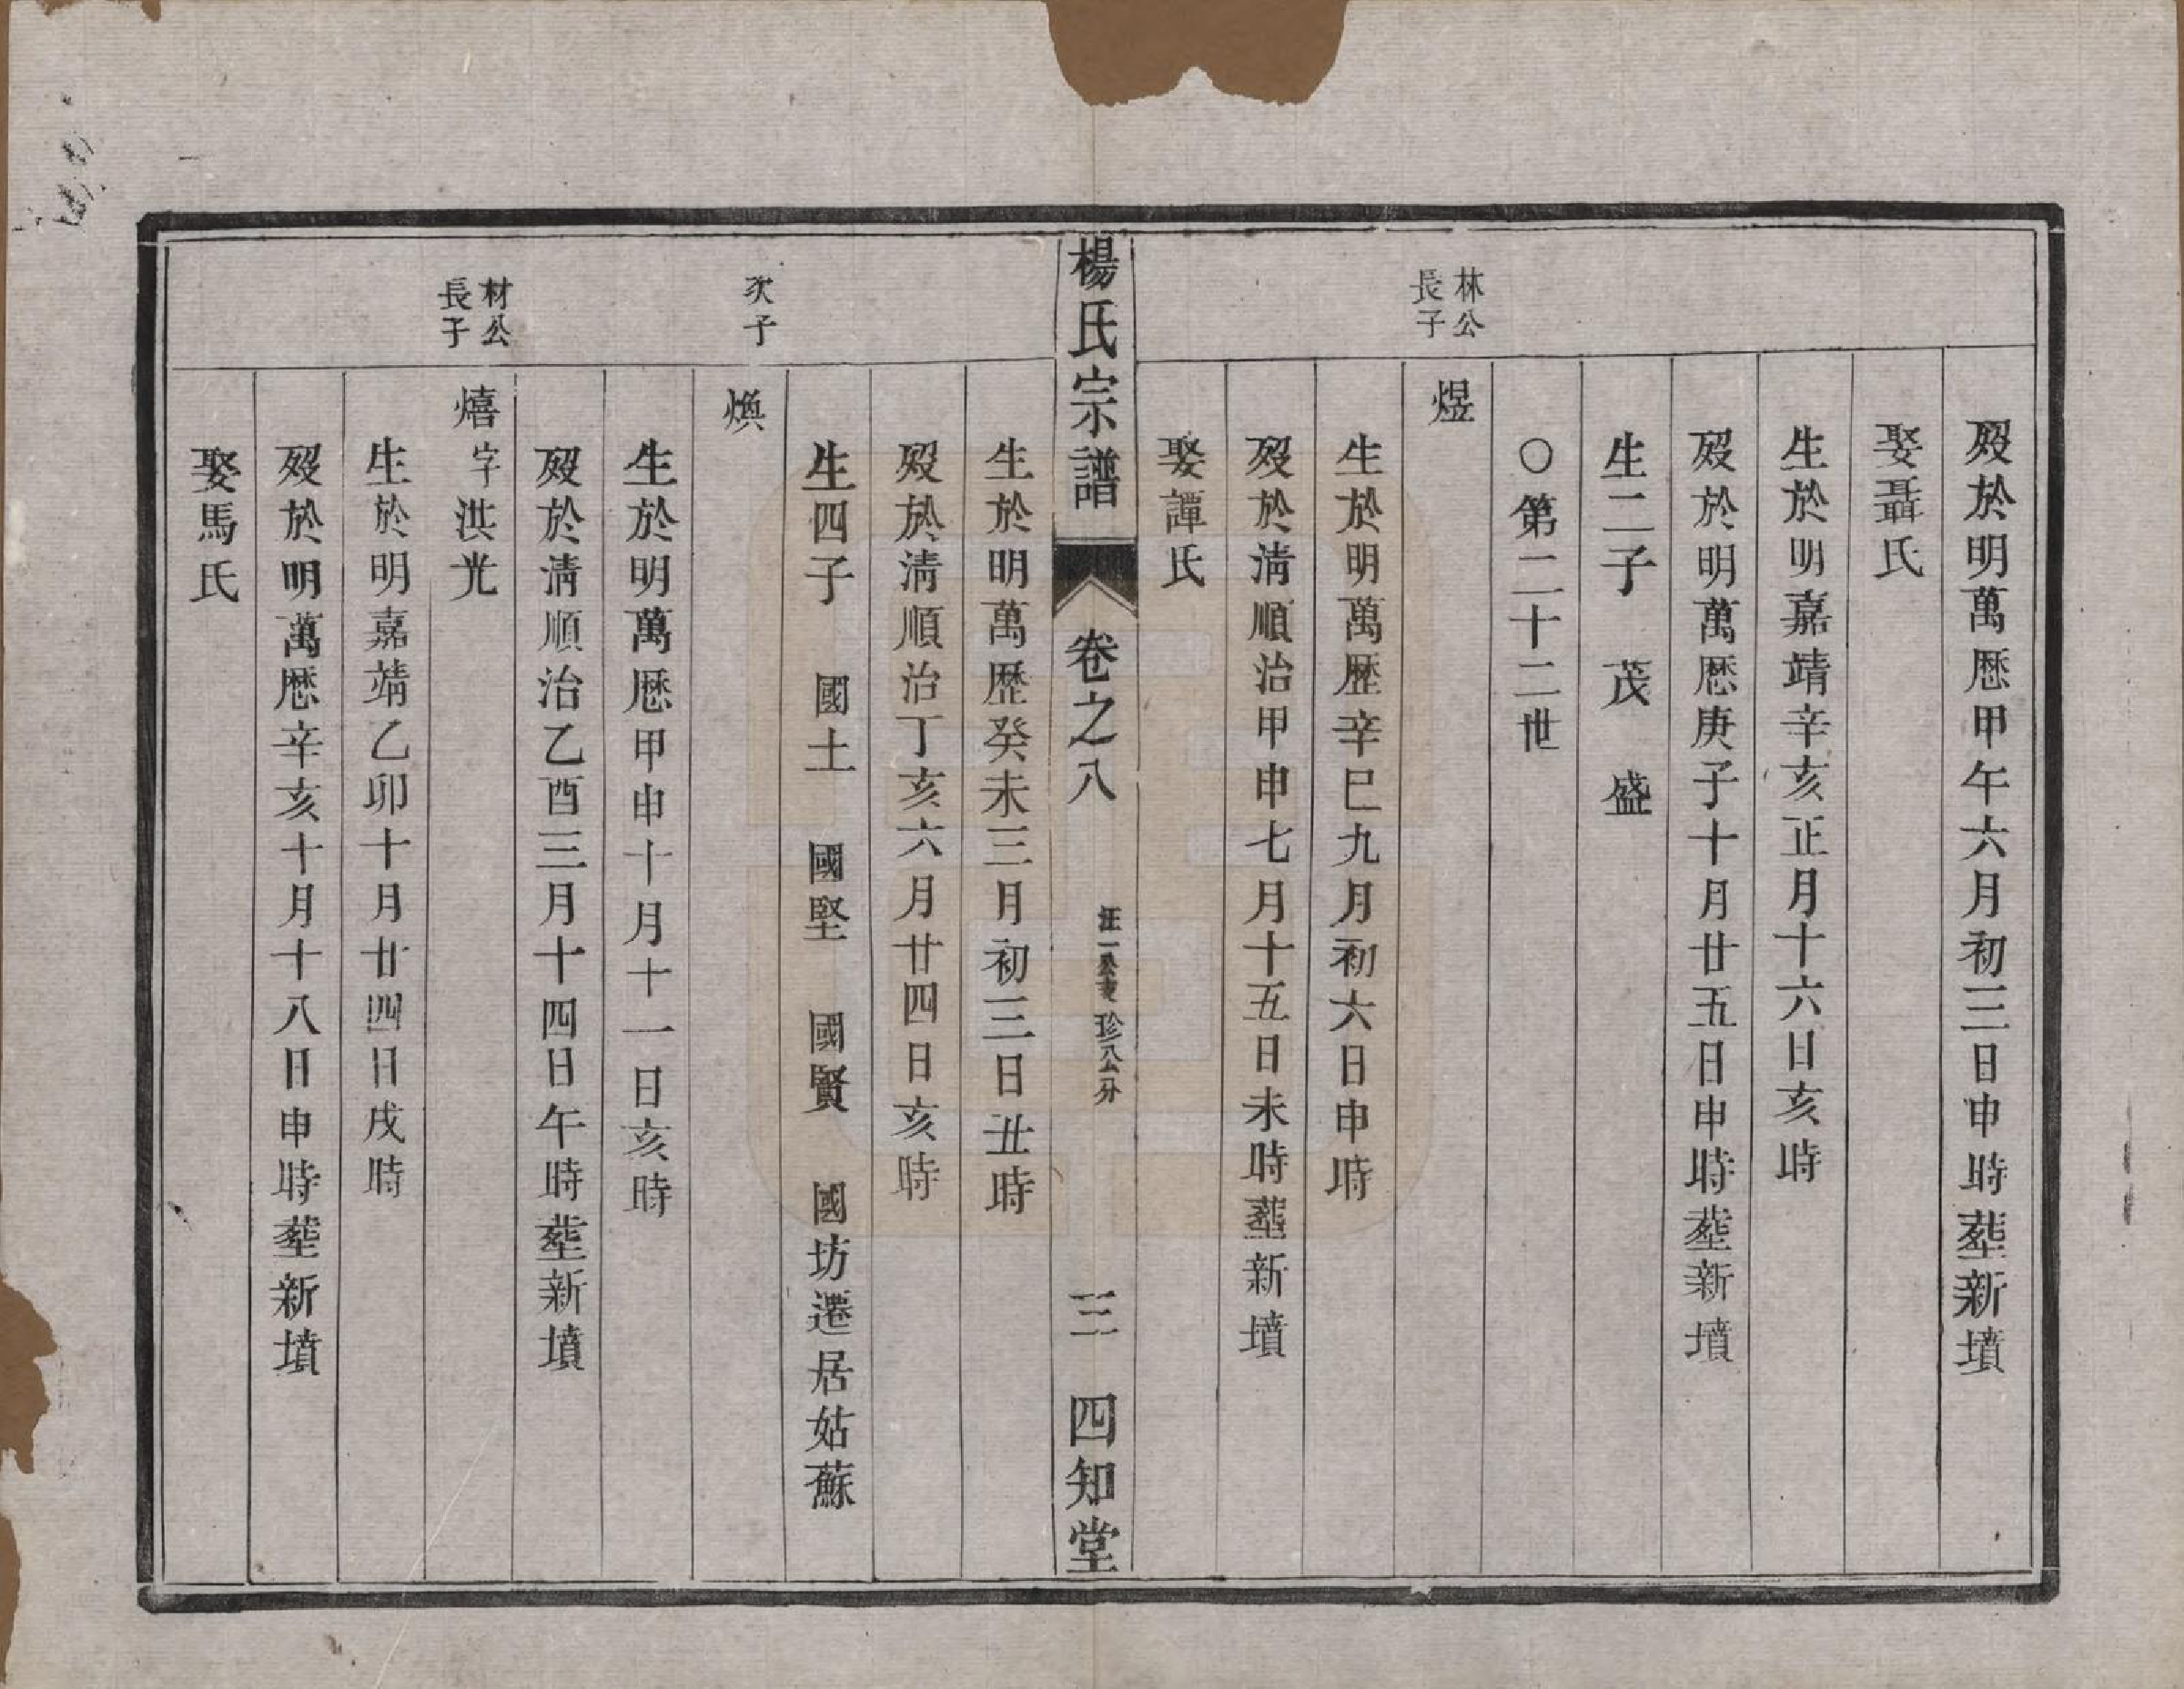 歿於明萬厯甲午六月初三日申時塟新墳
娶聶氏
生於明嘉靖辛亥正月十六日亥時
歿於明萬厯庚子十月廿五日申時塟新墳
生二子 茂 盛
○第二十二世
林公長子 煜
生於明萬歷辛巳九月初六日申時
歿於淸順治甲申七月十五日未時塟新墳
娶譚氏
楊氏宗譜 卷之八 珍八公分 三 四知堂
生於明萬歷癸未三月初三日丑時
歿於淸順治丁亥六月廿四日亥時
生四子 國土 國堅 國賢 國坊遷居姑蘇
次子 煥
生於明萬厯甲申十月十一日亥時
歿於淸順治乙酉三月十四日午時塟新墳
材公長子 熺字洪光
生於明嘉靖乙卯十月廿四日戌時
歿於明萬厯辛亥十月十八日申時塟新墳
娶馬氏